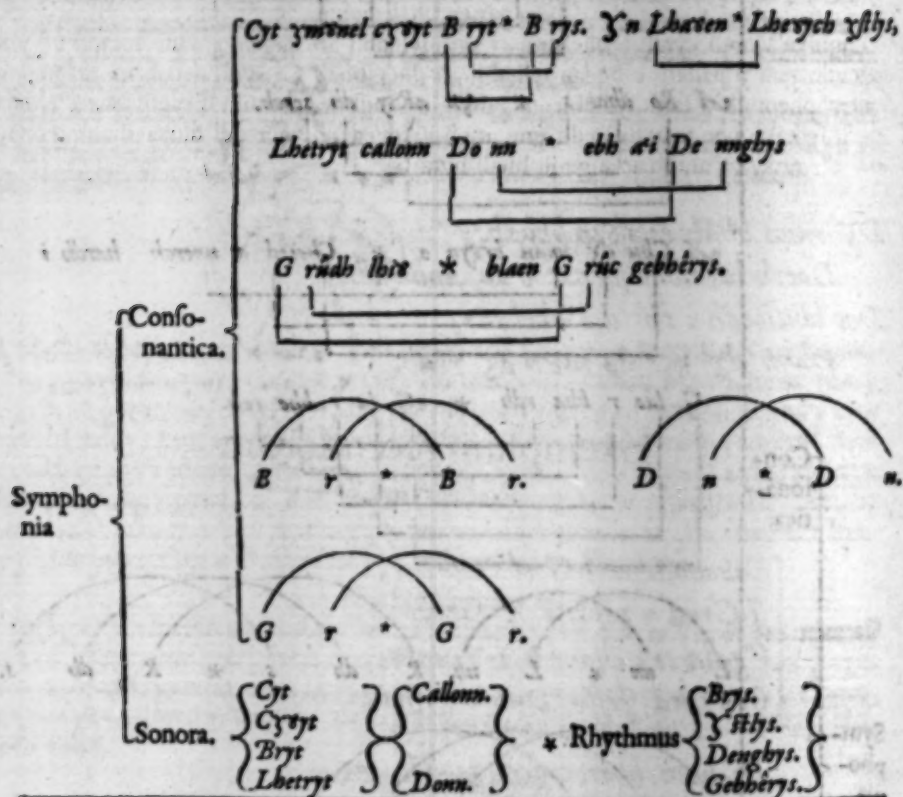 Cyt ymơnel cyơyt B ryt * B rys. Yn Lhaơen * Lheơych yſtlys,
Lhetryt callonn Do nn * ebh a'i De nnghys
G rûdh lhiơ * blaen G rûc gebhêrys.
Conſo-
nantica.
B r * B r. D n * D n.
Sympho-
nia
G r * G r.
Sonora.
Cyt
Cyơyt
Bryt
Lhetryt
Callonn.
Donn.
* Rhythmus
Brys.
Yſtlys.
Denghys.
Gebhêrys.